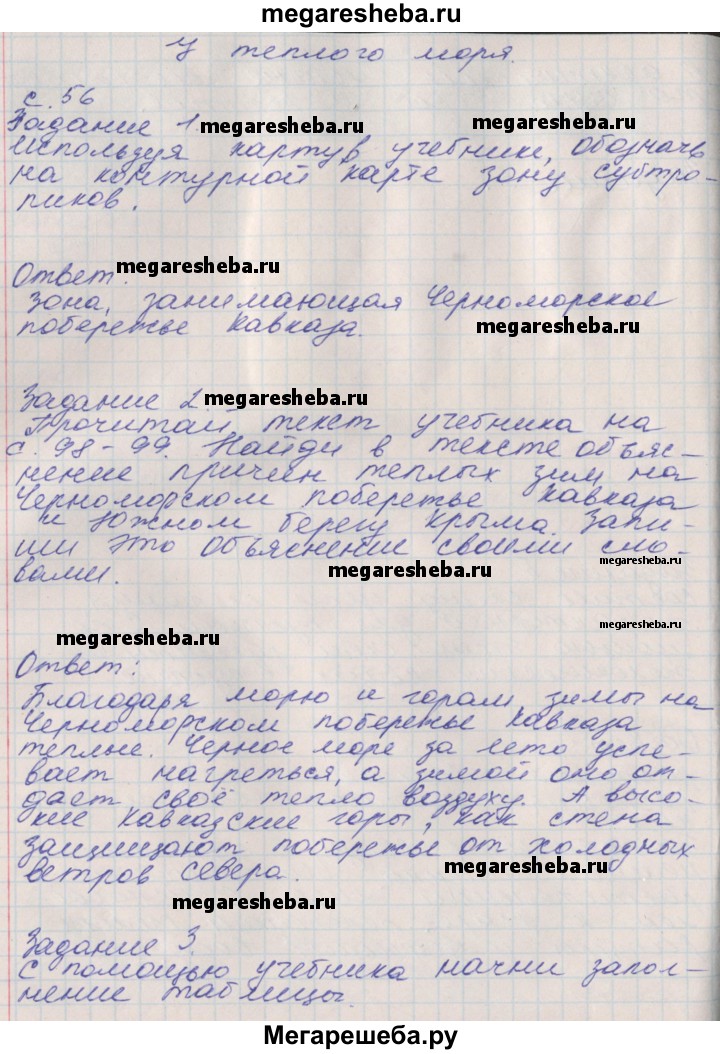 megaresheba.ru
У теплого моря.
с. 56
Задание 1. megaresheba.ru megaresheba.ru
Используя карту в учебнике, обозначь
на контурной карте зону субтро-
пиков.
Ответ: megaresheba.ru
Зона, занимающая Черноморское
побережье Кавказа. megaresheba.ru
Задание 2. megaresheba.ru
Прочитай текст учебника на
с. 98-99. Найди в тексте объяс-
нение причин теплых зим на
Черноморском побережье Кавказа
и Южном берегу Крыма. Запи-
ши это объяснение своими сло-
вами. megaresheba.ru megaresheba.ru
megaresheba.ru megaresheba.ru
Ответ:
Благодаря морю и горам зимы на
Черноморском побережье Кавказа
теплые. Черное море за лето успе-
вает нагреться, а зимой оно от-
дает своё тепло воздуху. А высо-
кие Кавказские горы, как стена
защищают побережье от холодных
ветров севера. megaresheba.ru
megaresheba.ru
Задание 3.
С помощью учебника начни запол-
нение таблицы. megaresheba.ru
Мегарешеба.ру